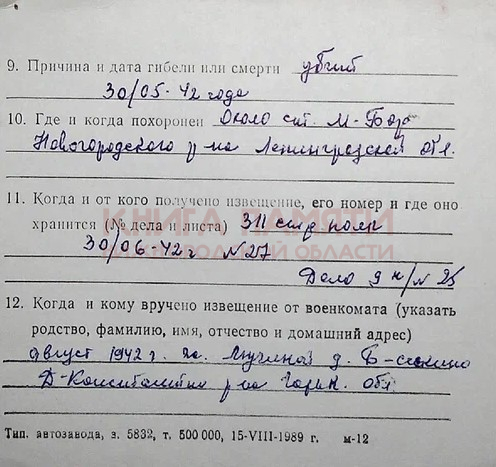 9. Причина и дата гибели или смерти убит
30/05-42 года
10. Где и когда похоронен Около ст. М-Бор
Новгородского р-на Ленинградской обл.
11. Когда и от кого получено извещение, его номер и где оно
хранится (№ дела и листа) 311 стр полк
30/06-42 г N 27
Дело 9 н/N 25
КНИГА ПАМЯТИ
НИЖЕГОРОДСКОЙ ОБЛАСТИ
12. Когда и кому вручено извещение от военкомата (указать
родство, фамилию, имя, отчество и домашний адрес)
август 1942 г. д.
Д-Константин р-на Горьк. обл
Тип. автозавода, з. 5832, т. 500 000, 15-VIII-1989 г. м-12